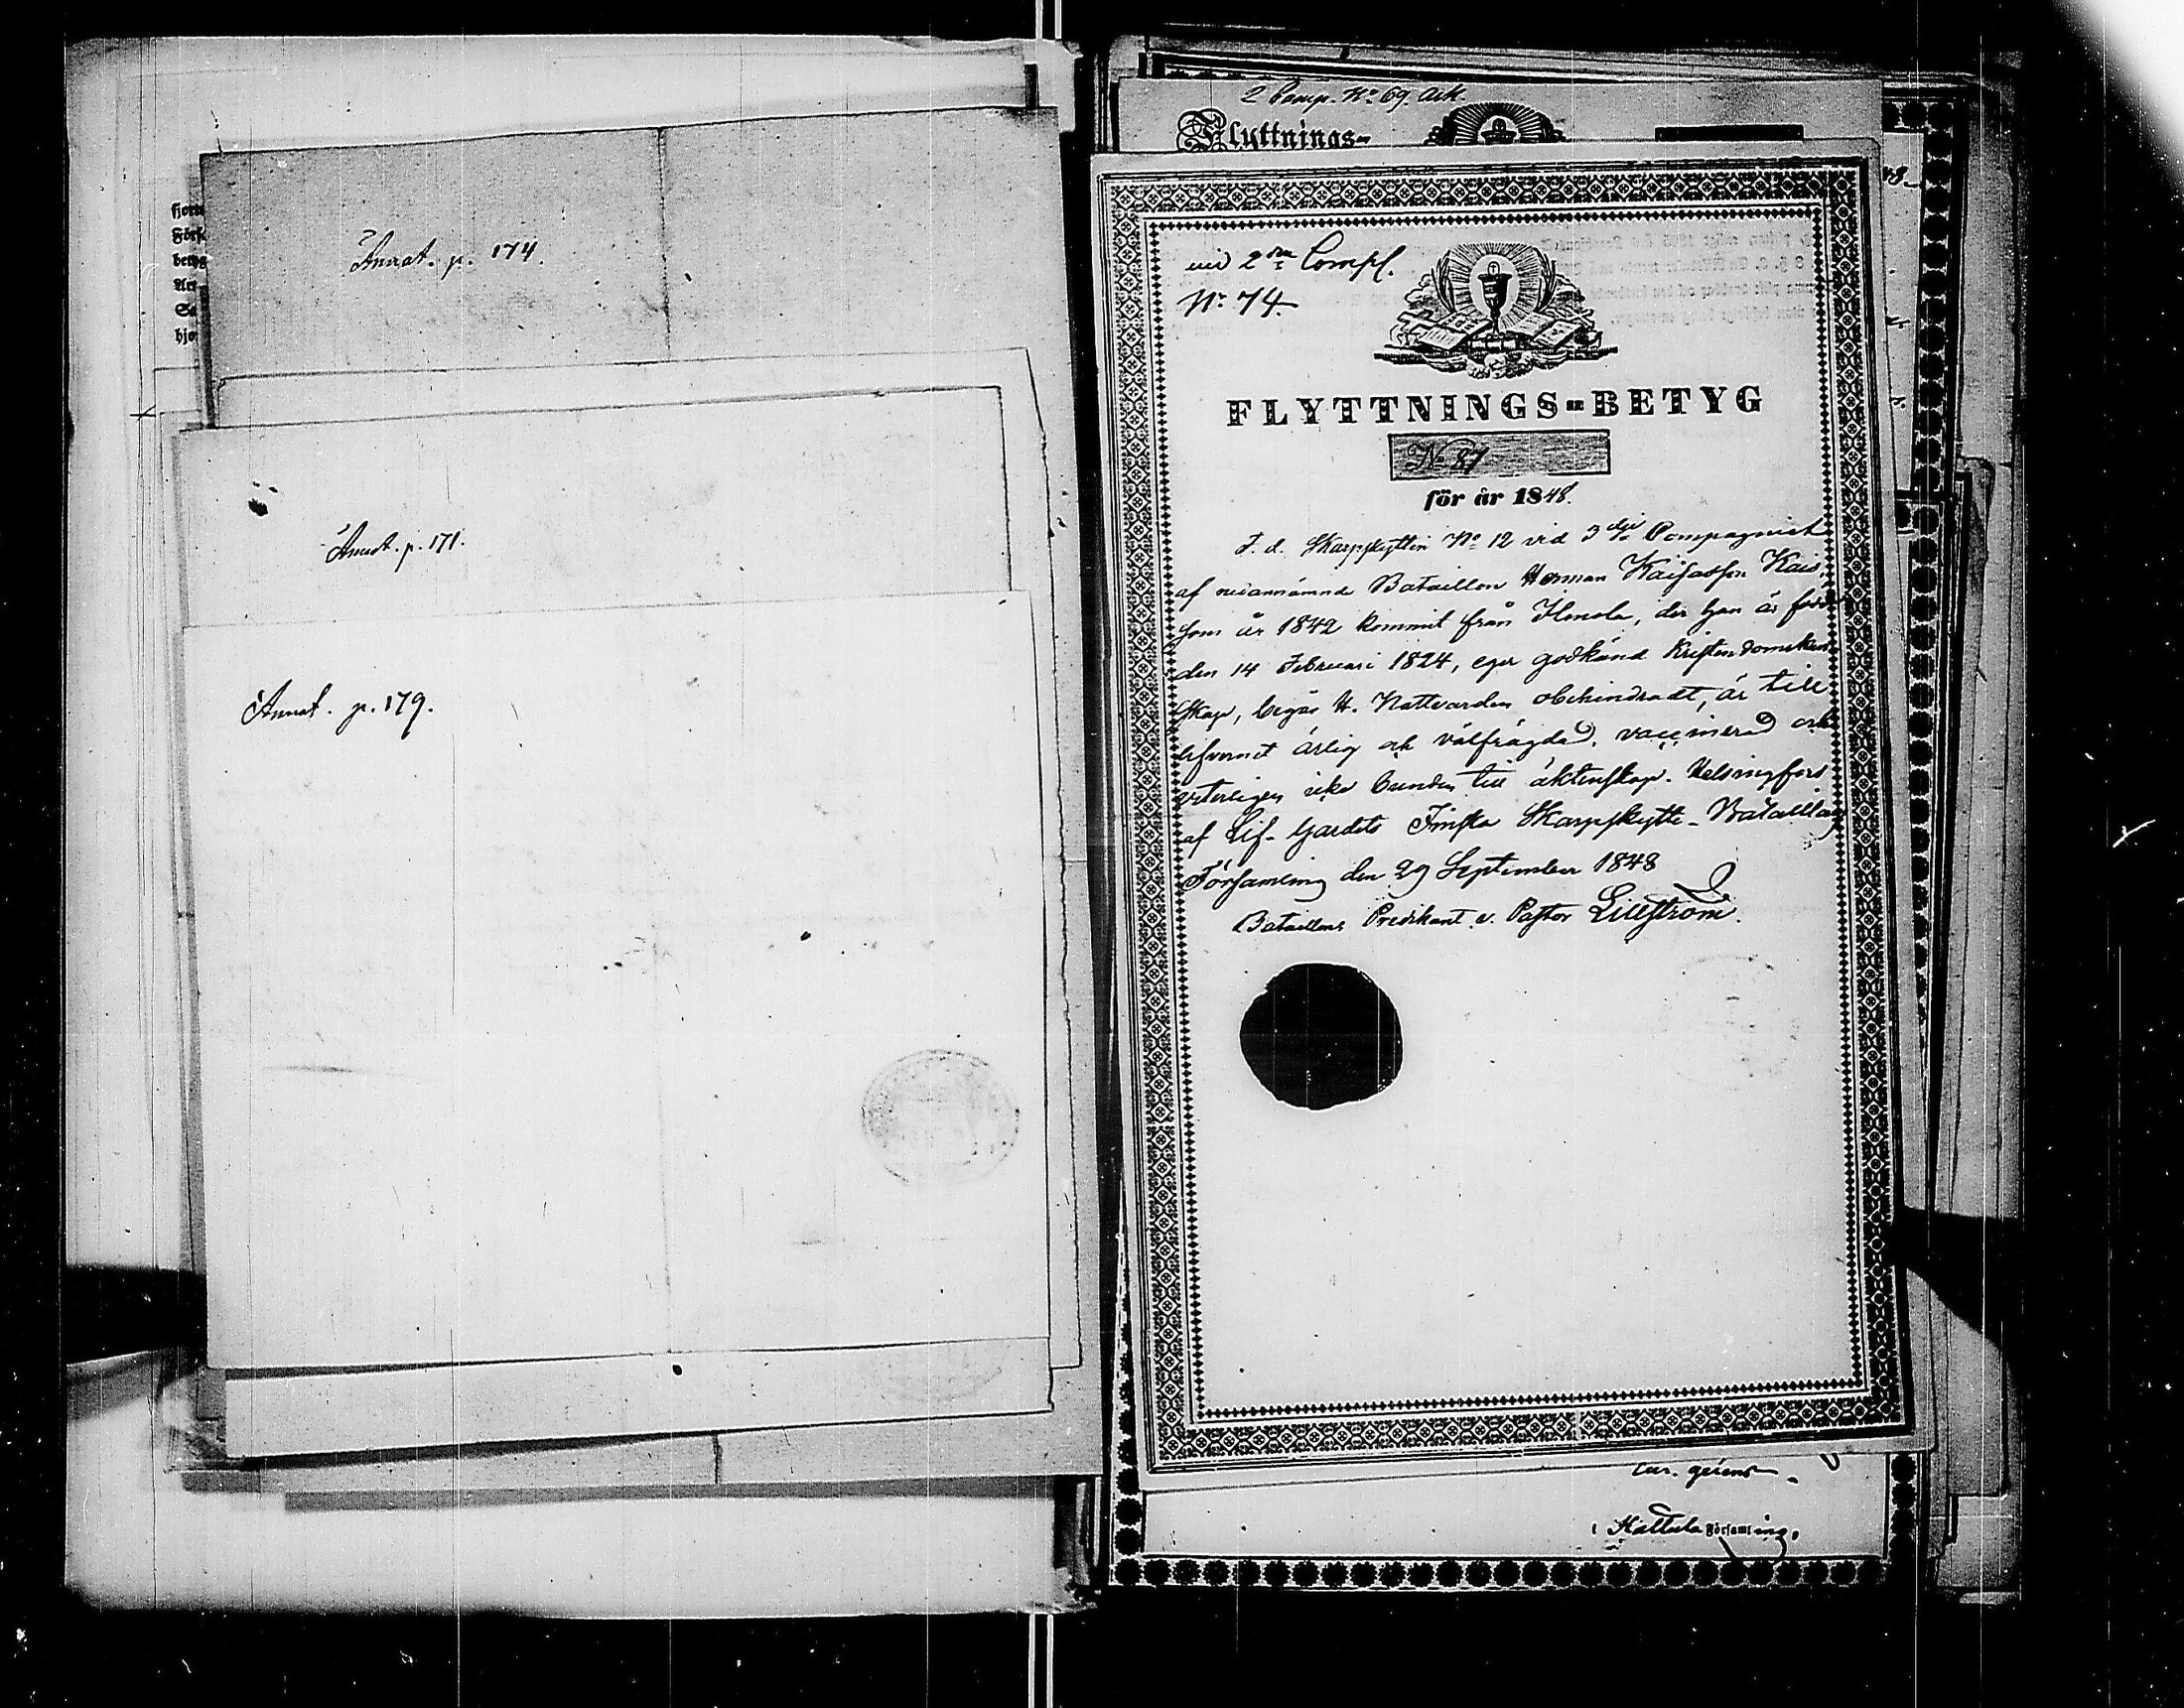 Annot. p. 174.
Annot. p. 171.
Annot. p. 179.
2 Comp. No. 69. Ark.
Flyttnings-
vid 2dra Compl.
No. 74.
FLYTTNINGS-BETYG
No 87
för år 1848.
F. d. Skarpskytten No 12 vid 3dje Compagniet
af nedannämnde Bataillon Herman Kaifasson Kais,
som år 1842 kommit från Ilmola, der han är född
den 14 Februari 1824, eger godkänd Kristendomskun
skap, begår H. Nattvarden obehindradt, är till
lefvernet ärlig och välfrägdad, vaccinerad och
veterligen icke bunden till äktenskap. Helsingfors
af Lif-Gardets Finska Skarpskytte-Bataillons
Församling den 29 September 1848
Bataillons Predikant v. Pastor Lillström.
Hattula Församling.